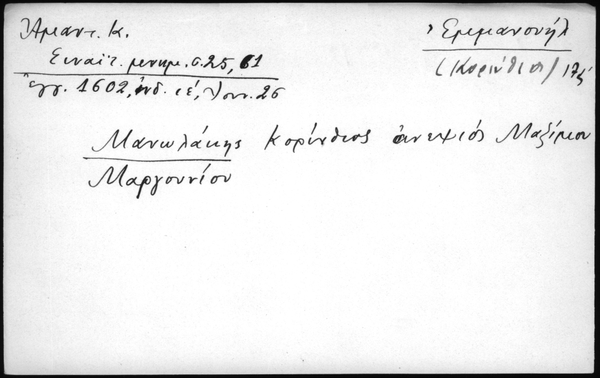 Ἄμαντ. Κ.
Σιναϊτ. μνημ. σ. 25, 61
Ἔγγ. 1602, ἰνδ. ιέ, Ἰουν. 26
Ἐμμανουήλ
(Κορίνθιος) 17ς΄
Μανωλάκης Κορίνθιος ἀνεψιός Μαξίμου
Μαργουνίου